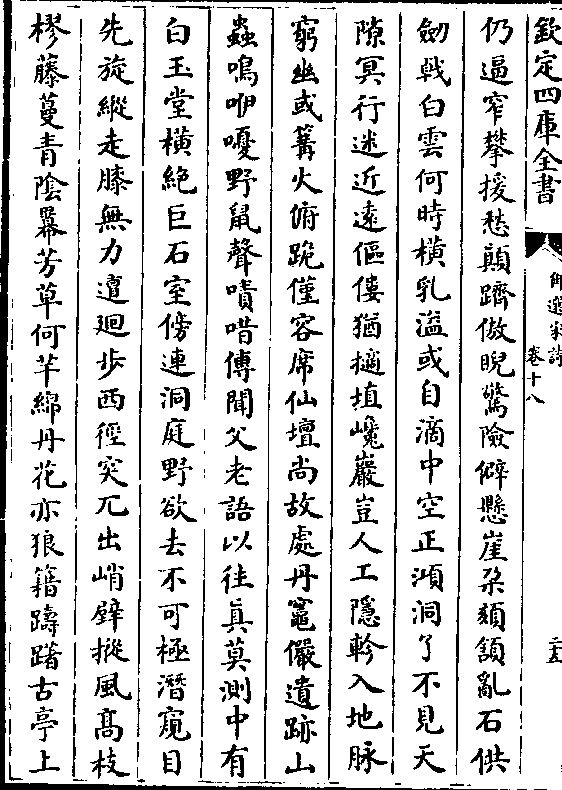 欽定四庫全書
御選宋詩
卷十八
二五
仍逼窄攀援愁顛躋傲睨驚險僻懸崖朶頰頷亂石供
劒戟白雲何時橫乳溢或自滴中空正澒洞了不見天
隙冥行迷近遠傴僂猶擿埴巉巖豈人工隱軫入地脉
窮幽或篝火俯跪僅容席仙壇尚故處丹竈儼遺跡山
蟲鳴咿嚘野鼠聲嘖唶傳聞父老語以往真莫測中有
白玉堂橫絶巨石室傍連洞庭野欲去不可極潛窺目
先旋縱走膝無力邅迴步西徑突兀出峭壁摐風髙枝
樛藤蔓青陰羃芳草何芊綿丹花亦狼籍躊躇古亭上